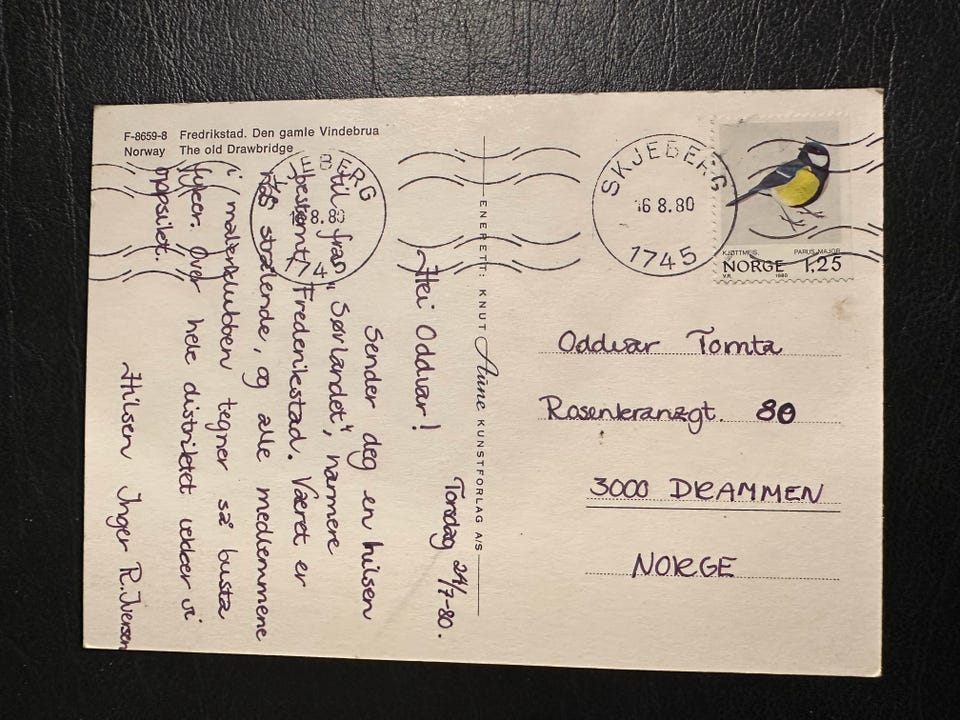 F-8659-8 Fredrikstad. Den gamle Vindebrua
Norway The old Drawbridge
Torsdag 24/7-80.
Hei Oddvar!
Sender deg en hilsen
fra "Sørlandet", nærmere
bestemt Fredrikstad. Været er
strålende, og alle medlemmene
i malerklubben tegner så busta
fyker. Over hele distriktet vekker vi
oppsikt.
Hilsen Inger R. Iversen
ENERETT: KNUT Aune KUNSTFORLAG A/S
SKJEBERG
16 8.80
1745
JEBERG
8.80
174
KJØTTMEIS, PARUS MAJOR
NORGE 1,25
V.R. 1980
Oddvar Tomta
Rosenkranzgt. 80
3000 DRAMMEN
NORGE